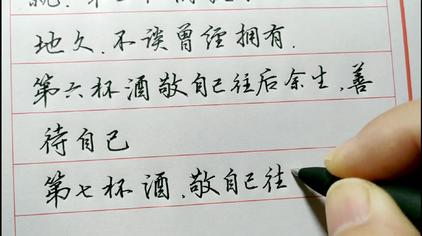 地久.不谈曾经拥有.
第六杯酒敬自己往后余生,善
待自己
第七杯酒,敬自己往